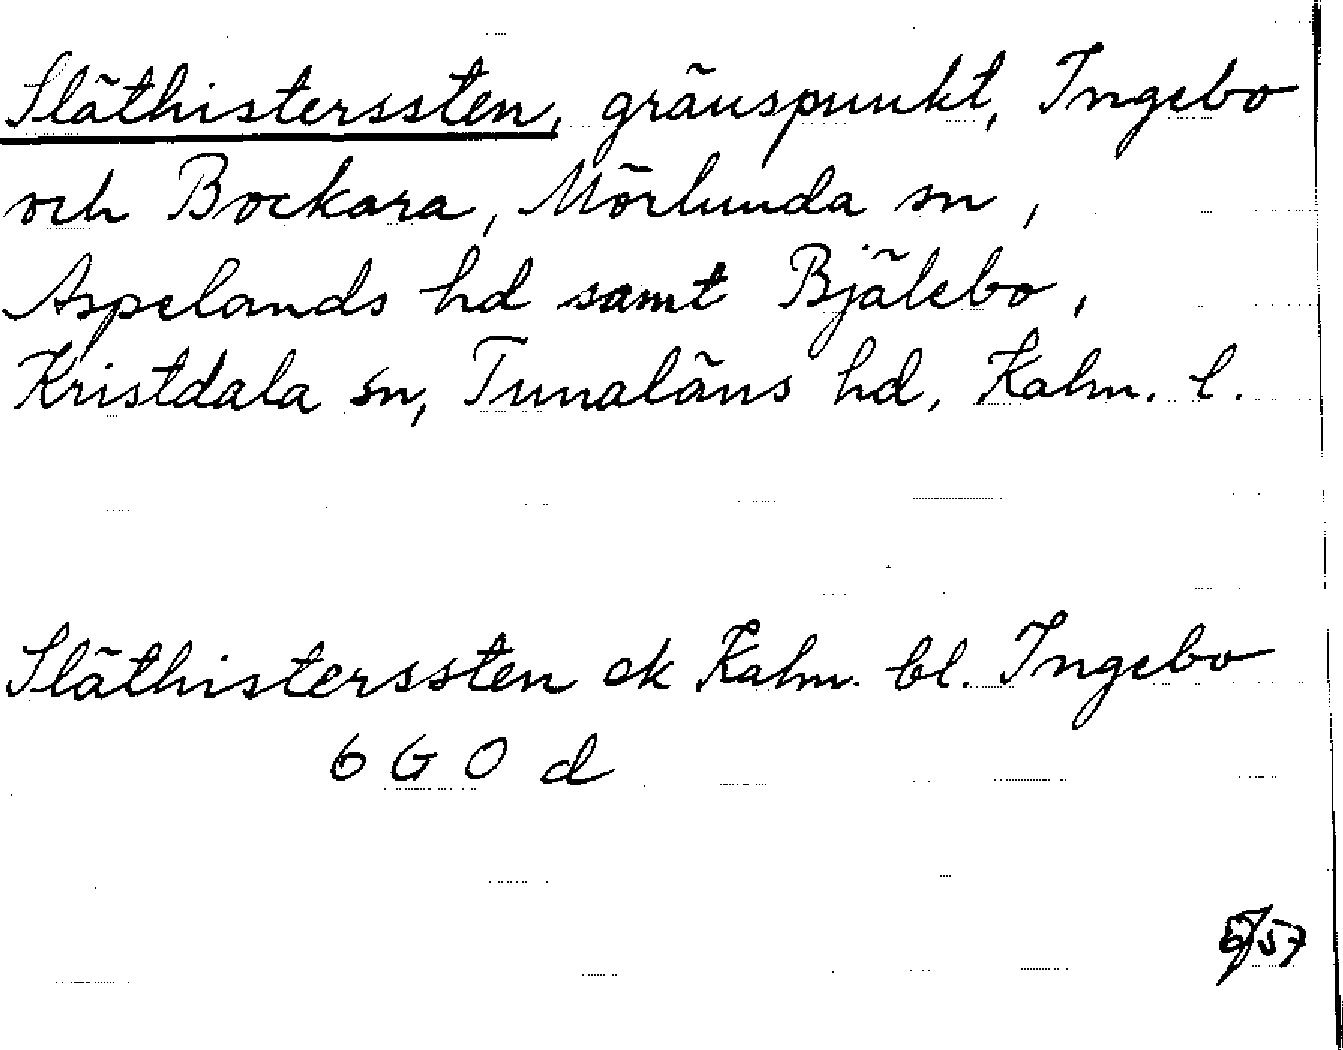 Släthistersten, gränspunkt, Ingebo
och Bockara, Mörlunda sn,
Aspelands hd samt Bjälebo,
Kristdala sn, Tunaläns hd, Kalm. l.
Släthisterssten ek Kalm. bl. Ingebo
6 G O d
/57